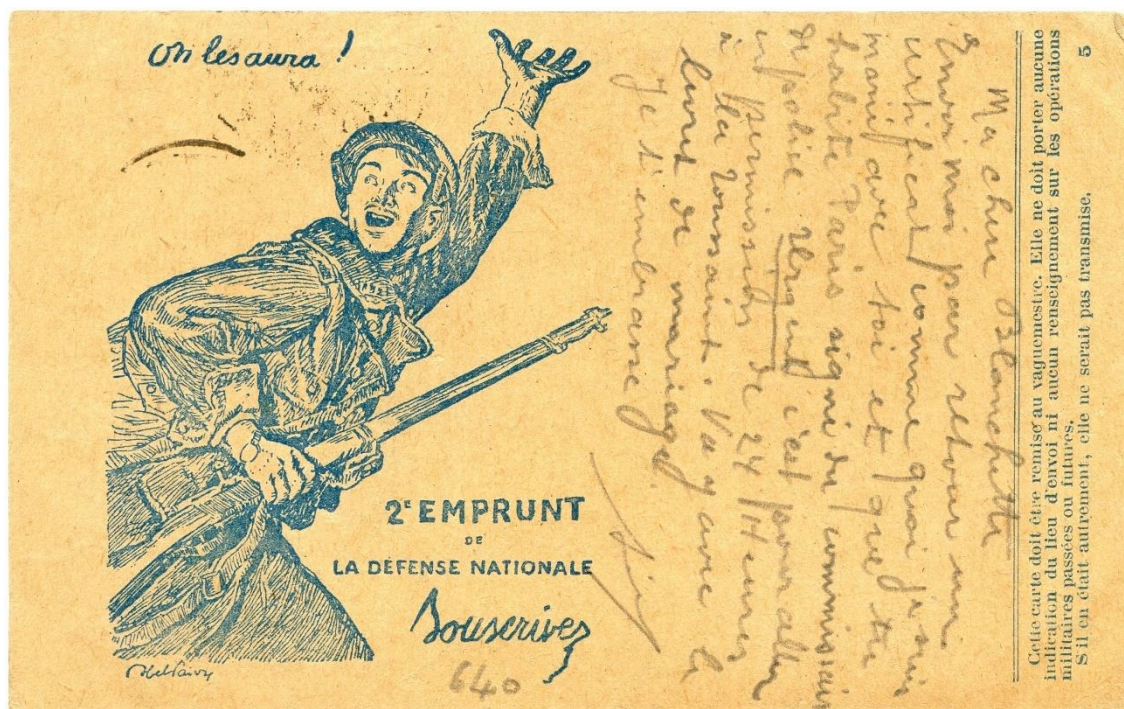 On les aura !
2E EMPRUNT
DE
LA DÉFENSE NATIONALE
Souscrivez
640
Ma chère Blanchette
Envoi moi par retour un
certificat comme quoi je suis
marié avec toi et que tu
habite Paris signé du commissaire
de police urgent c'est pour aller
en permission de 24 Heures
à la Toussaint. Va y avec le
livret de mariage.
Je t'embrasse
Cette carte doit être remise au vaguemestre. Elle ne doit porter aucune
indication du lieu d'envoi ni aucun renseignement sur les opérations
militaires passées ou futures.
S'il en était autrement, elle ne serait pas transmise.
5